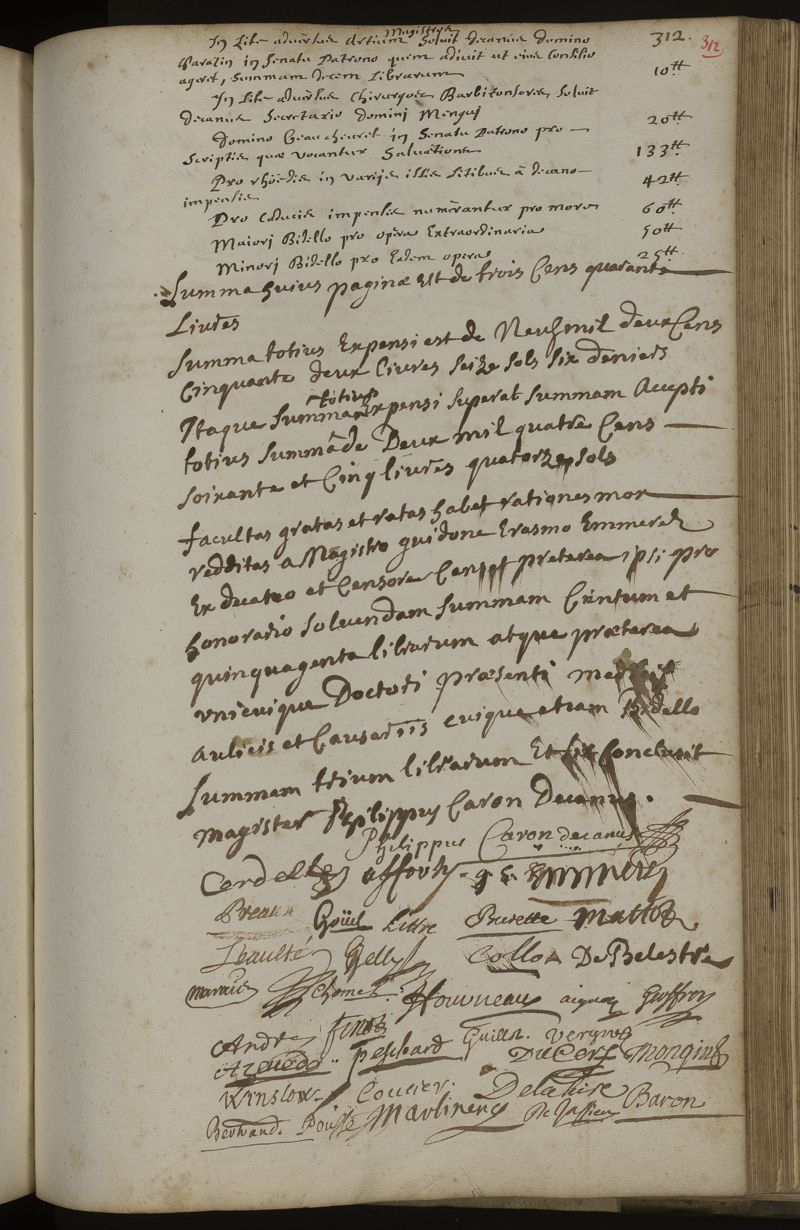 312. 312
Magistros
In Lite adversus Artium Soluit decanus domino
Sarazin in Senatu Patrono quem adivit ut eius Consilio
ageret, Summam decem Librarum 10tt
In Lite adversus Chirurgos Barbitonsores soluit
decanus Secretario Domini Mengui 20tt
Domino Beaucheuret in Senatu Patrono pro
Scriptis quæ vocantur Salvations 133tt
Pro rhoedis in varijs istis Litibus â decano
impensis 42tt
Pro Caducis impensis numerantur pro more 60tt
Maiori Bidello pro opera Extraordinaria 50tt
Minori Bidello pro Eadem opera 25tt
Summa huius paginæ Est de trois Cens quarante
Livres
Summa totius Expensi est de Neuf mil deux Cens
Cinquante deux livres seize sols six deniers
totius
Itaque Summa Expensi superat summam Accepti
totius summâ de Deux mil quatre Cens
soixante et Cinq livres quatorze sols
facultas gratas et ratas habet rationes mox
redditas a Magistro guidone Erasmo Emmerez
Ex decano et Censore Censet preterea ipsi pro
honorario solvendam summam Centum et
quinquaginta librarum atque præterea
unicuique Doctori præsenti medicis
aulicis et Causariis cuique etiam Bidello
summam trium librarum Et sic Conclusit
magister Philippus Caron Decanus.
Philippus Caron decanus
Cordelle afforty g E Emmerez
Preaux Goüel Littre Burette Mattot
Leaulté Gelly Collot De Belestre
maraud Chomel Houvneau aignan Geoffroy
Andry finot Guillot. Vergne
Azevedo Peschard Du Cerf Mongin
Winslow Couvier. Delahire
Bertrand. Pousse Martinenq De Jussieu Baron